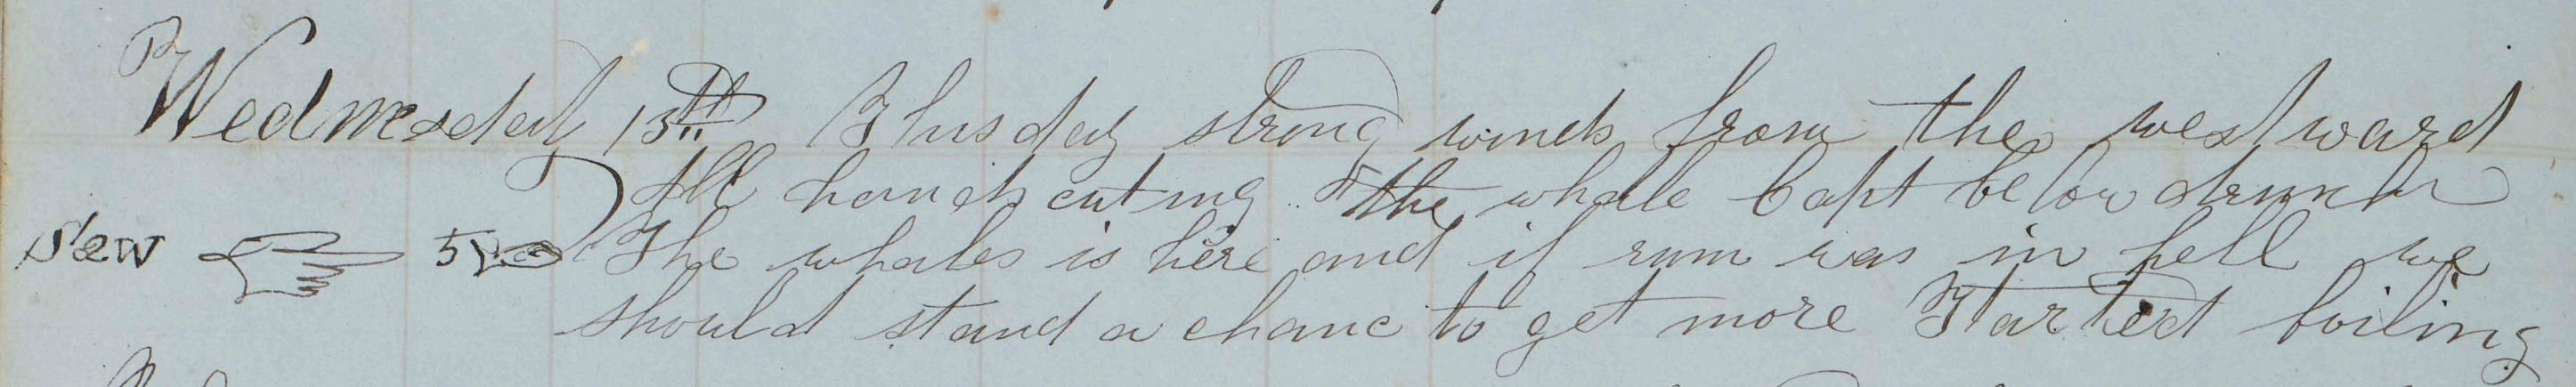 Wednesday 13th Thusday strong winds from the westward
All hands cuting the whale Capt below drunk
Saw 5 The whales is here and if rum was in hell we
should stand a chanc to get more Started boiling